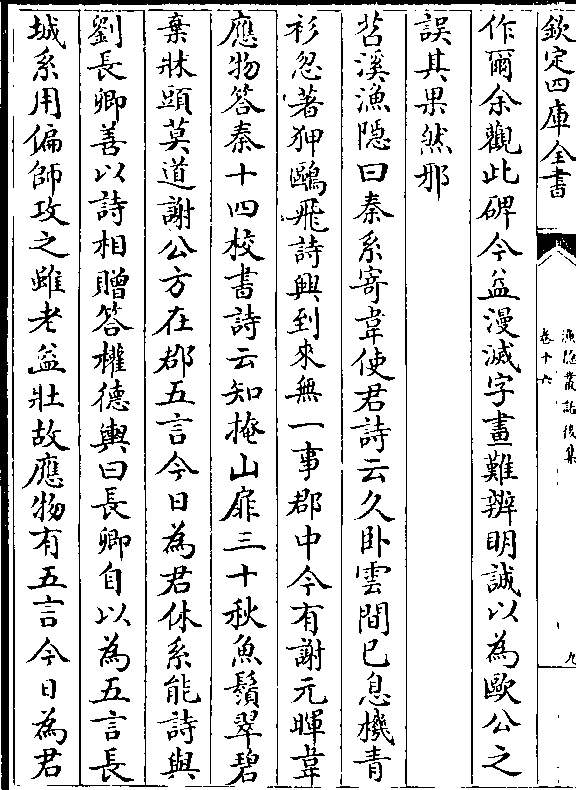 欽定四庫全書
漁隱叢話後集
卷十六
九
作爾余觀此碑今益漫滅字畫難辨明誠以為歐公之
誤其果然邪
苕溪漁隱曰秦系寄韋使君詩云久卧雲間已息機青
衫忽著狎鷗飛詩興到來無一事郡中今有謝元暉韋
應物答秦十四校書詩云知掩山扉三十秋魚鬚翠碧
棄牀頭莫道謝公方在郡五言今日為君休系能詩與
劉長卿善以詩相贈答權德輿曰長卿自以為五言長
城系用偏師攻之雖老益壯故應物有五言今日為君